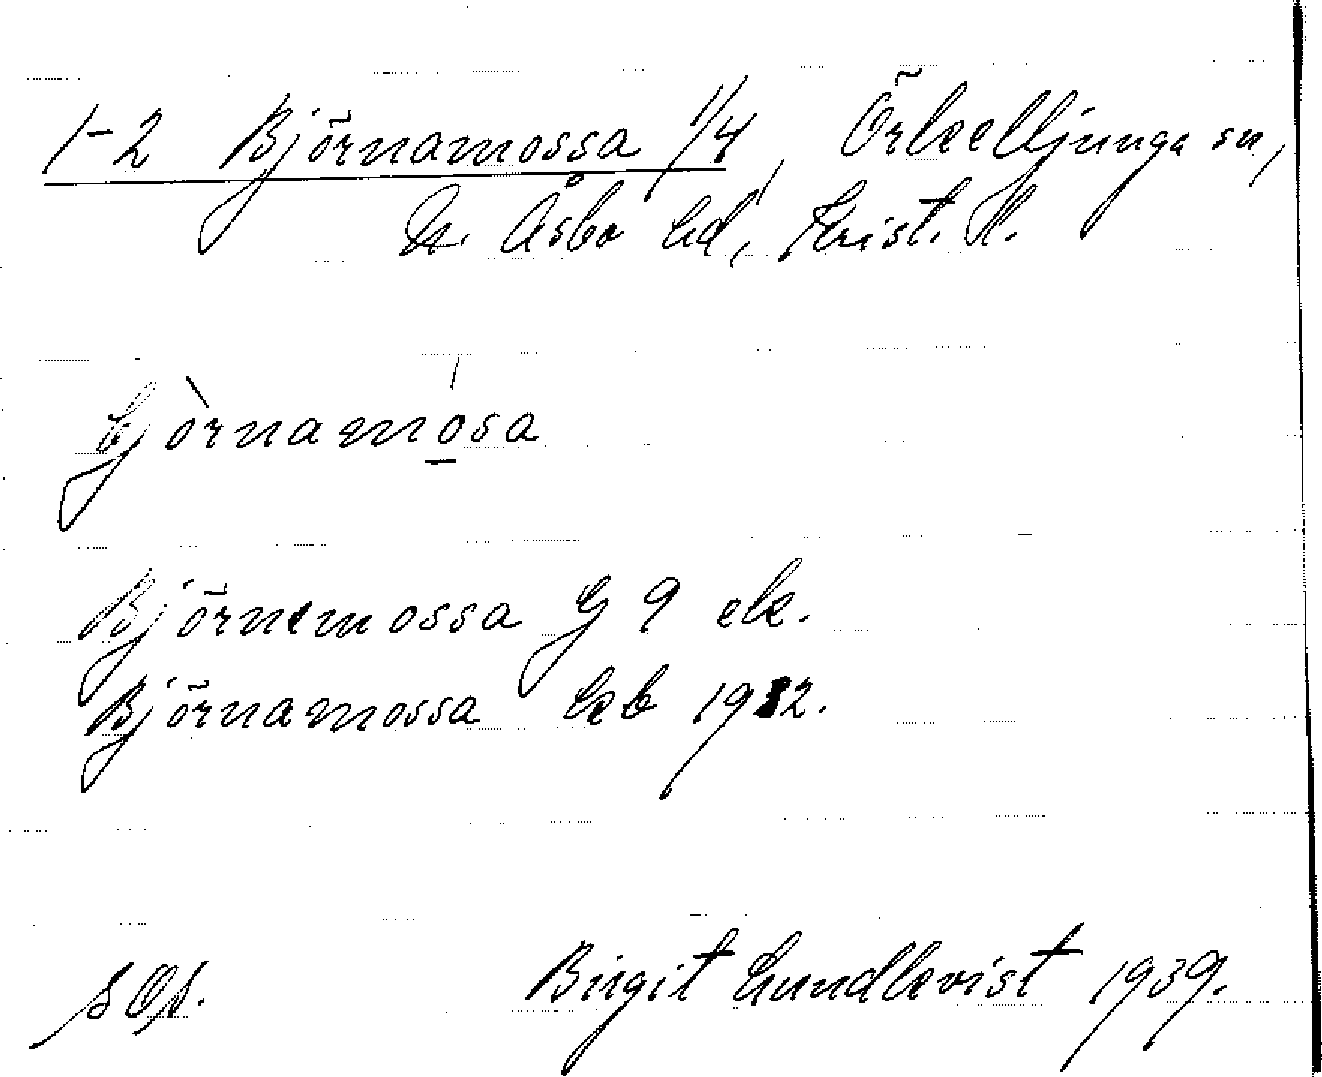 1-2 Björnamossa 1/4, Örkelljunga sn,
N. Åsbo hd, Krist. l.
bjö̀rnamósa
Björnemossa G 9 ek.
Björnamossa Leb 1912.
s Os.
Birgit Lundkvist 1939.